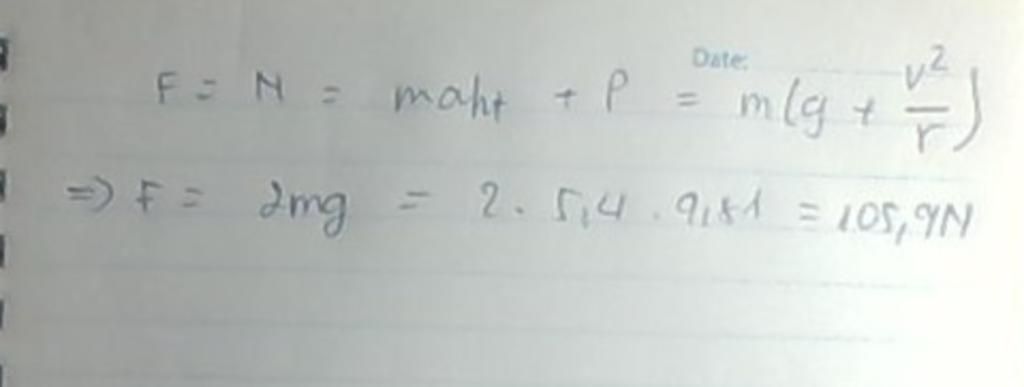 Date:
F = N = maht + P = m(g + v²/r)
=> F = 2mg = 2. 5,4 . 9,81 = 105,9N